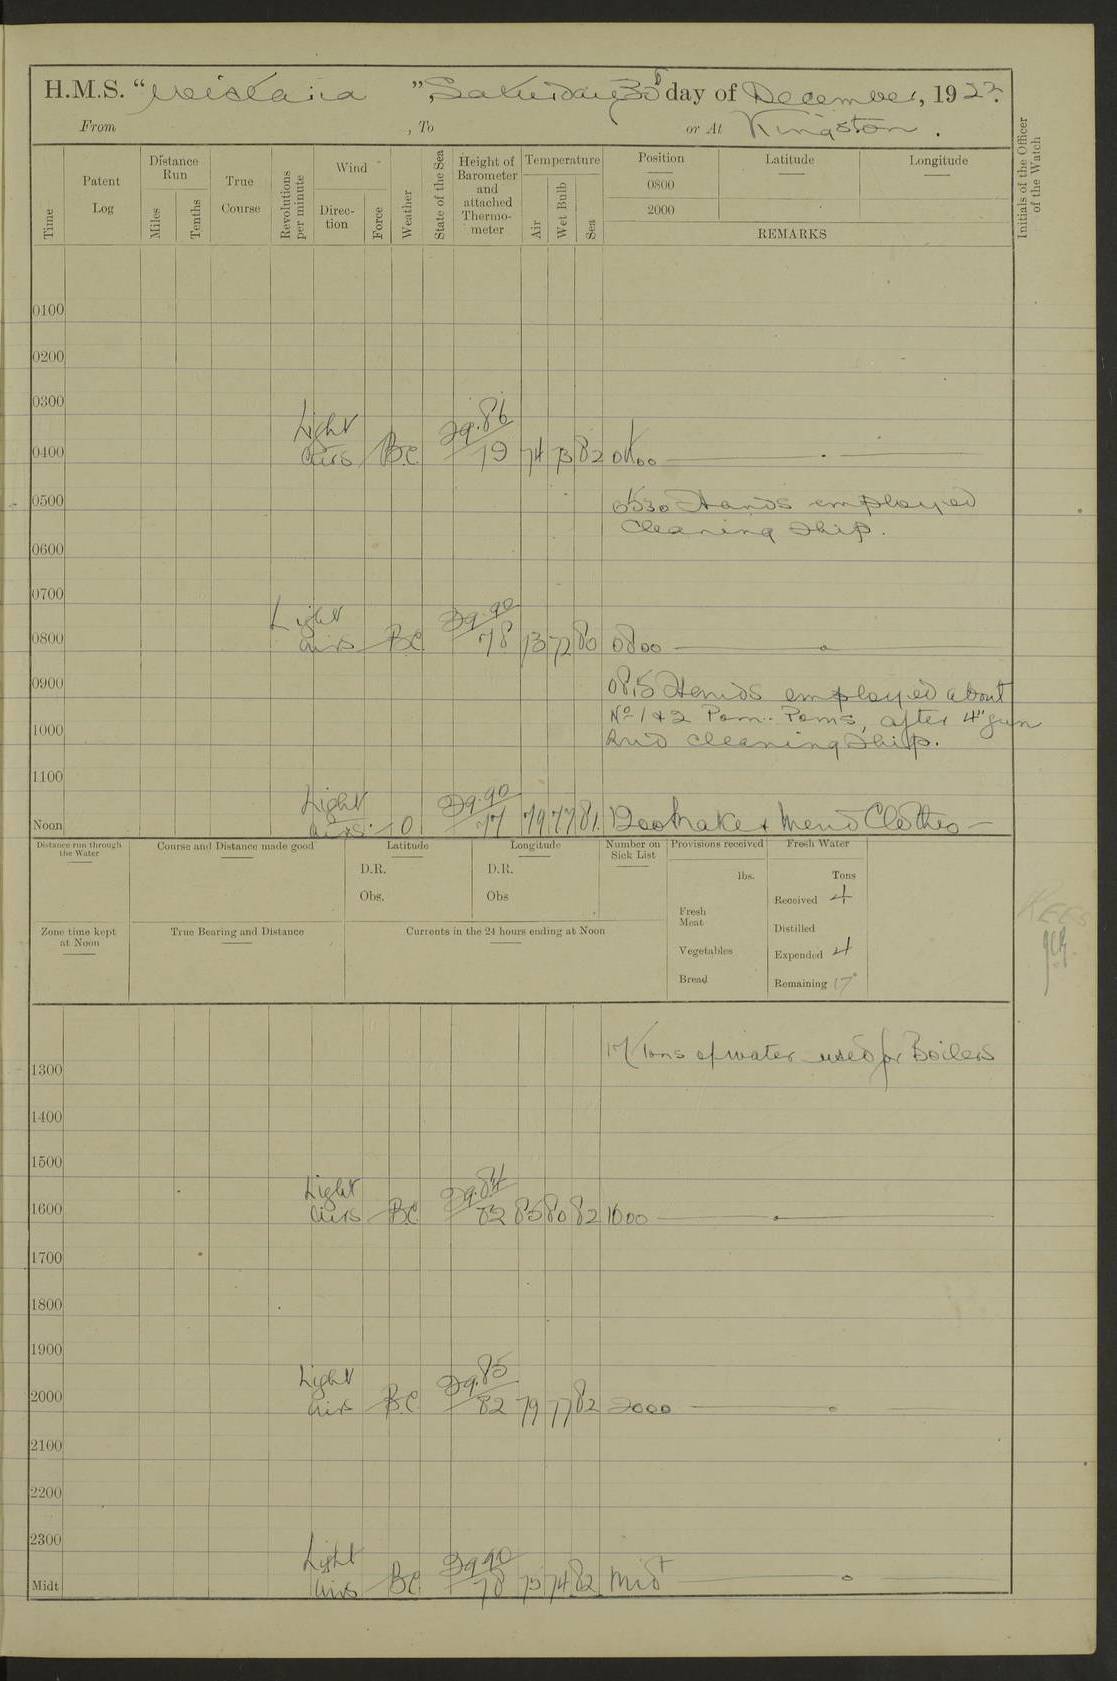 H.M.S. "Wistaria", Saturday 30th day of December, 1922.
From , To or At Kingston.
Time
Patent Log
Distance Run
Miles
Tenths
True Course
Revolutions per minute
Wind
Direction
Force
Weather
State of the Sea
Height of Barometer and attached Thermometer
Temperature
Air
Wet Bulb
Sea
Position
0800
2000
Latitude
Longitude
REMARKS
Initials of the Officer of the Watch
0100
0200
0300
Light 29.86
0400 airs BC 79 74 73 82 0400
0500 0530 Hands employed
Cleaning Ship.
0600
0700
Light 29.90
0800 airs BC 78 73 72 80 0800
0900 0815 Hands employed about
No 1 & 2 Pom-Poms, after 4" gun
1000 and cleaning Ship.
1100
Light 29.90
Noon airs O 77 79 77 81 1200 Make & Mend Clothes
Distance run through the Water
Course and Distance made good
Latitude
D.R.
Obs.
Longitude
D.R.
Obs
Number on Sick List
Provisions received
lbs.
Fresh Meat
Vegetables
Bread
Fresh Water
Tons
Received 4
Distilled
Expended 4
Remaining 17
Zone time kept at Noon
True Bearing and Distance
Currents in the 24 hours ending at Noon
Tons of water used for Boilers
1300
1400
1500
Light 29.84
1600 airs BC 82 85 80 82 1600
1700
1800
1900
Light 29.85
2000 airs BC 82 79 77 82 2000
2100
2200
2300
Light 29.90
Midt airs BC 78 75 74 82 Midt